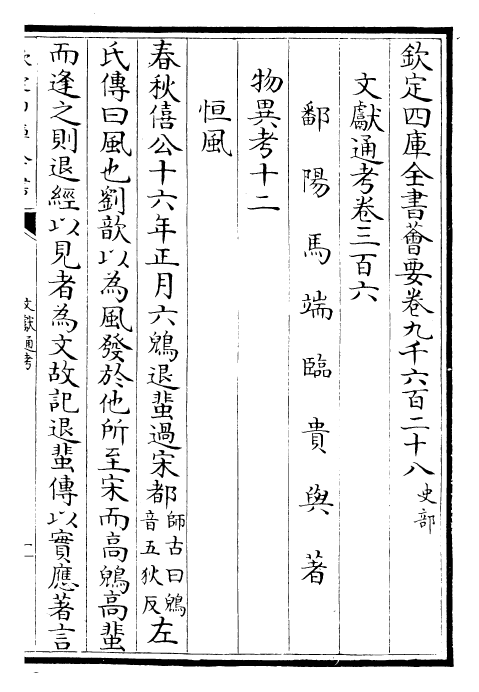 欽定四庫全書薈要卷九千六百二十八 史部
文獻通考卷三百六
鄱陽馬端臨貴與著
物異考十二
恒風
春秋僖公十六年正月六鶂退蜚過宋都師古曰鶂音五狄反左
氏傳曰風也劉歆以為風發於他所至宋而高鶂高蜚
而逢之則退經以見者為文故記退蜚傳以實應著言
文獻通考